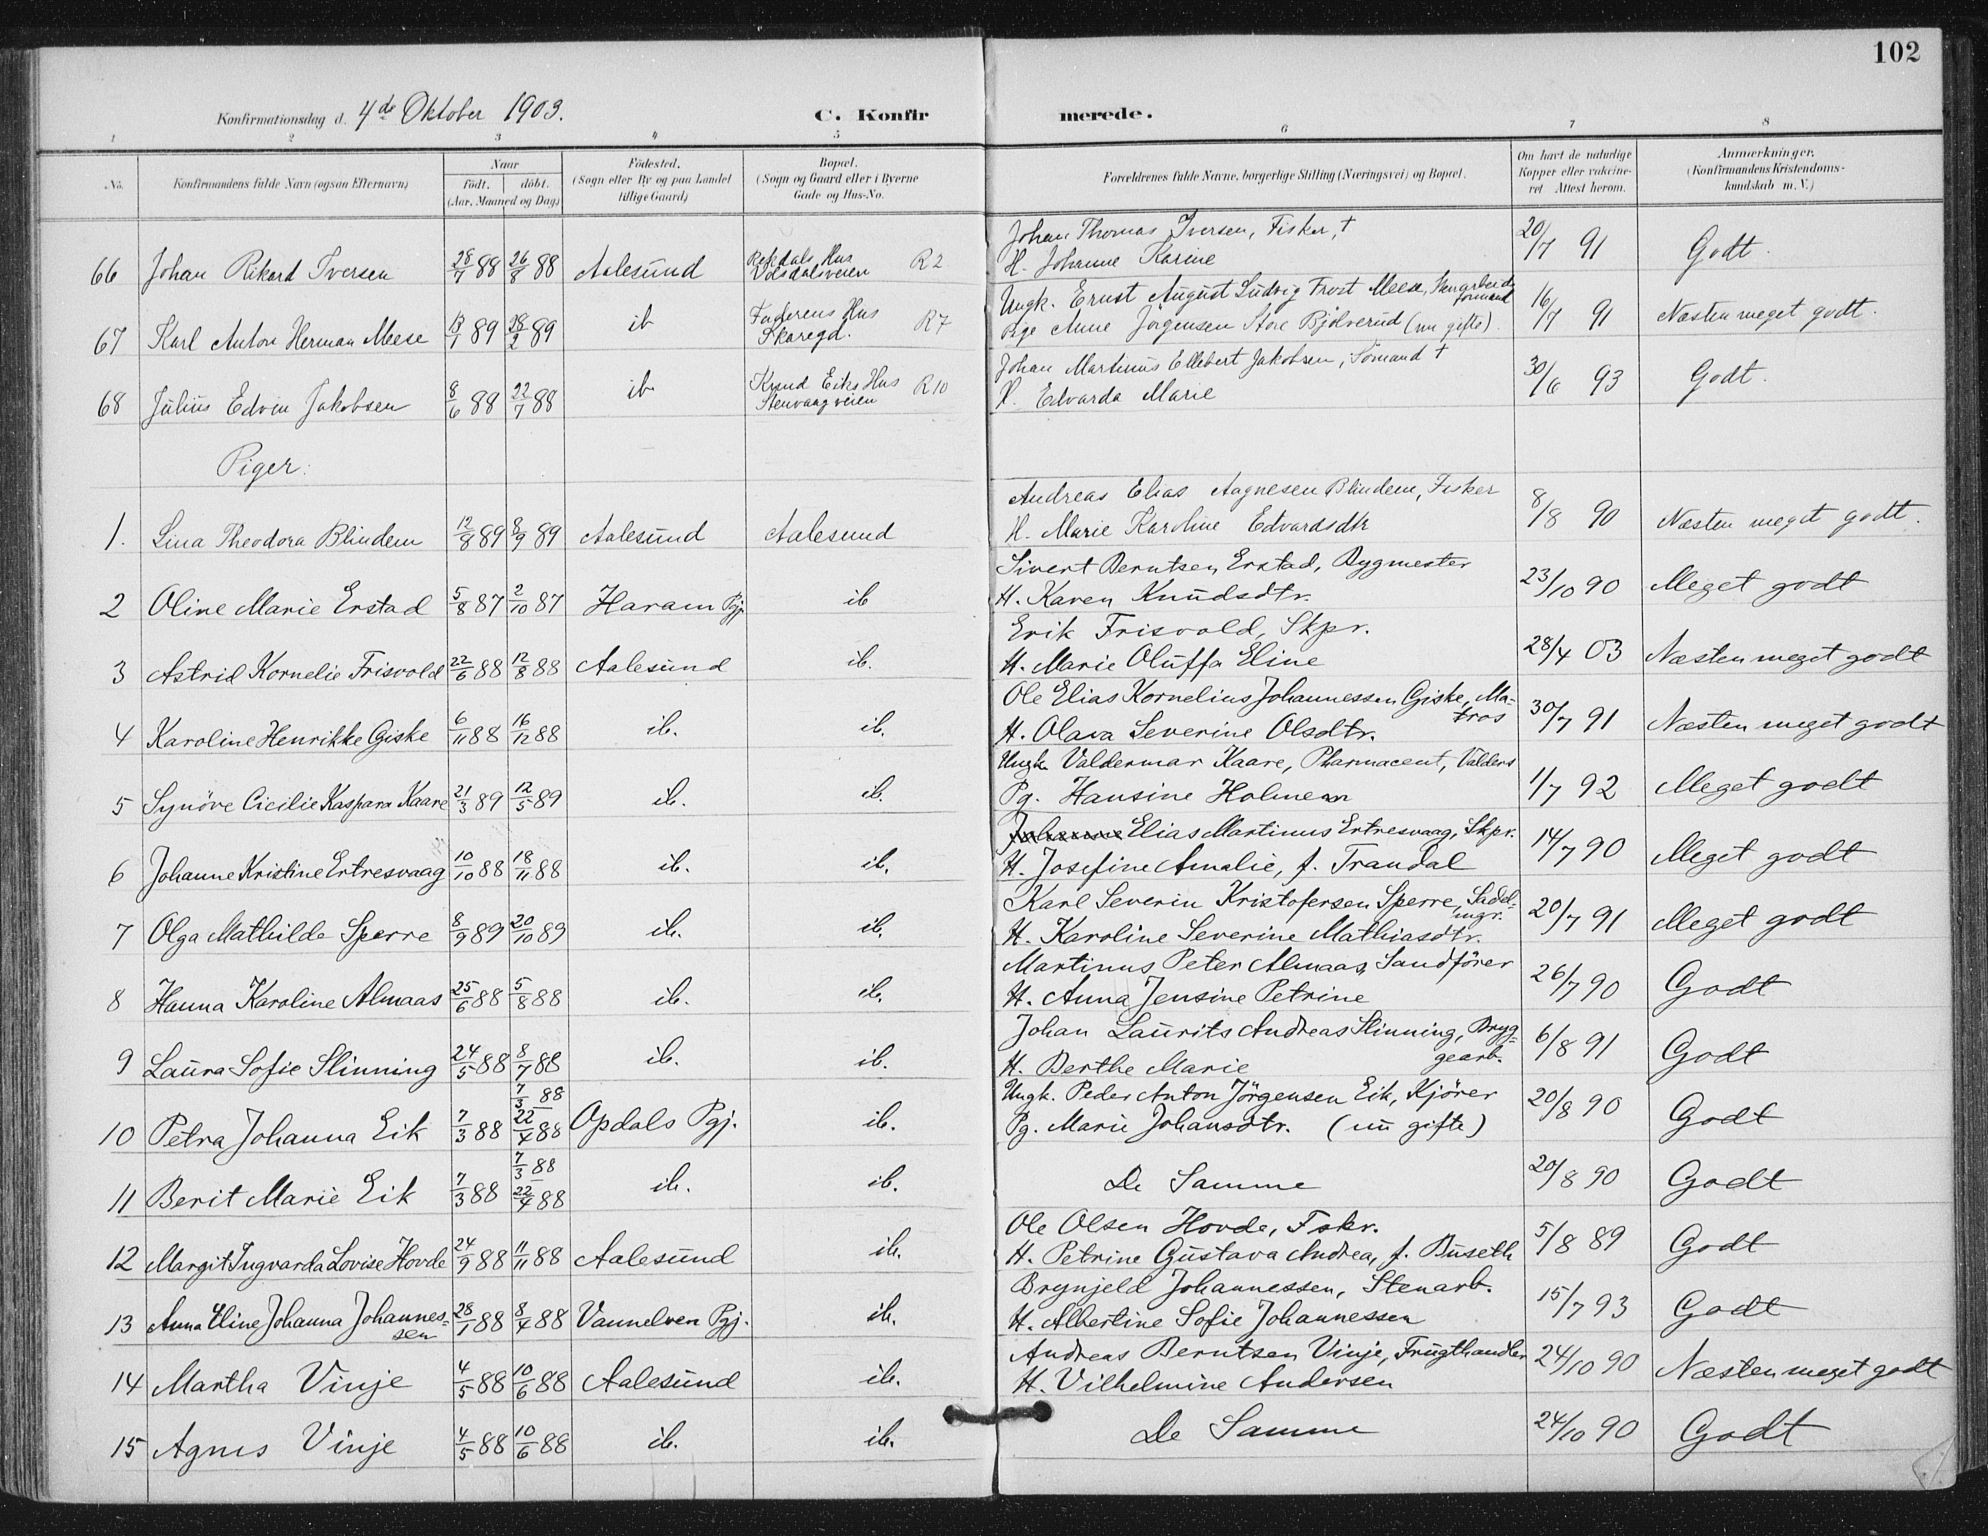 102
Konfirmationsdag d. 4de Oktober 1903. C. Konfirmerede.
1 2 3 4 5 6 7 8
No. Konfirmandens fulde Navn (ogsaa Efternavn) Naar født. døbt. (Aar, Maaned og Dag) Fødested. (Sogn eller By og paa Landet tillige Gaard) Bopæl. (Sogn og Gaard eller i Byerne Gade og Hus-No. Forældrenes fulde Navne, borgerlige Stilling (Næringsvei) og Bopæl. Om havt de naturlige Kopper eller vaccineret Attest herom. Anmærkninger. (Konfirmandens Kristendomskundskab m. V.)
Johan Thomas Iversen, Fisker, †
66 Johan Rikard Iversen 26/8 88 Aalesund Hus Volsdalsveien R 2 H. Johanne Karine 20/7 91 Godt.
Ungk. Ernst August Ludvig Frost Meese, formand
67 Karl Anton Herman Meese 13/1 89 89 ib Faderens Hus Skaregd. R7 Pige Anne Jørgensen Store Bjölverud (nu gifte). 16/7 91 Næsten meget godt.
Johan Martinus Ellebert Jakobsen, Sömand †
68 Julius Edvin Jakobsen 8/6 88 22/7 88 ib Knud Eiks Hus Stenvaagveien R10 H. Edvarda Marie 30/6 93 Godt.
Piger:
Andreas Elias Aagnesen Blindem, Fisker
1. Lina Theodora Blindem 12/8 89 8/9 89 Aalesund Aalesund H. Marie Karoline Edvardsdtr 8/8 90 Næsten meget godt.
Sivert Berntsen Erstad, Bygmester
2 Oline Marie Erstad 5/8 87 2/10 87 Haram Pgj. ib H. Karen Knudsdtr. 23/10 90 Meget godt
Erik Frisvold, Skpr.
3 Astrid Kornelie Frisvold 22/6 88 12/8 88 Aalesund ib. H. Marie Oluffa Eline 28/4 03 Næsten meget godt
Ole Elias Kornelius Johannessen Giske, Matros
4 Karoline Henrikke Giske 6/11 88 16/12 88 ib. ib. H. Olava Severine Olsdtr. 30/7 91 Næsten meget godt
Ungk. Valdermar Kaare, Pharmacent, Valders
5 Synöve Cicilie Kaspara Kaare 21/3 89 12/5 89 ib. ib. Pg. Hansine Holmesen 1/7 92 Meget godt
Elias Martinus Ertresvaag, Skpr.
6 Johanne Kristine Ertresvaag 10/10 88 18/11 88 ib. ib. H. Josefine Amalie, f. Trandal 14/7 90 Meget godt
Karl Severin Kristofersen Sperre, Sadelmgr.
7 Olga Mathilde Sperre 8/9 89 20/10 89 ib. ib. H. Karoline Severine Mathiasdtr. 20/7 91 Meget godt
Martinus Peter Almaas, Sandförer
8 Hanna Karoline Almaas 25/6 88 5/8 88 ib. ib. H. Anna Jensine Petrine 26/7 90 Godt
Johan Laurits Andreas Slinning, Bryggearb.
9 Laura Sofie Slinning 24/5 88 8/7 88 ib. ib. H. Berthe Marie 6/8 91 Godt
7/3 88 Ungk. Peder Anton Jörgensen Eik, Kjörer
10 Petra Johanna Eik 7/3 88 22/4 88 Opdals Pgj. ib. Pg. Marie Johansdtr. (nu gifte) 20/8 90 Godt
7/3 88
11 Berit Marie Eik 7/3 88 22/4 88 ib. ib. De Samme 20/8 90 Godt
Ole Olsen Hovde, Fskr.
12 Margit Ingvarda Lovise Hovde 24/9 88 11/11 88 Aalesund ib. H. Petrine Gustava Andrea, f. Buseth 5/8 89 Godt
Brynjeld Johannessen, Stenarb.
13 Anna Eline Johanna Johannessen 28/1 88 8/4 88 Vannelven Pgj. ib. H. Albertine Sofie Johannessen 15/7 93 Godt
Andreas Berntsen Vinje, Frugthandler
14 Martha Vinje 4/5 88 10/6 88 Aalesund ib. H. Vilhelmine Andersen 24/10 90 Næsten meget godt
15 Agnes Vinje 4/5 88 10/6 88 ib. ib. De Samme 24/10 90 Godt